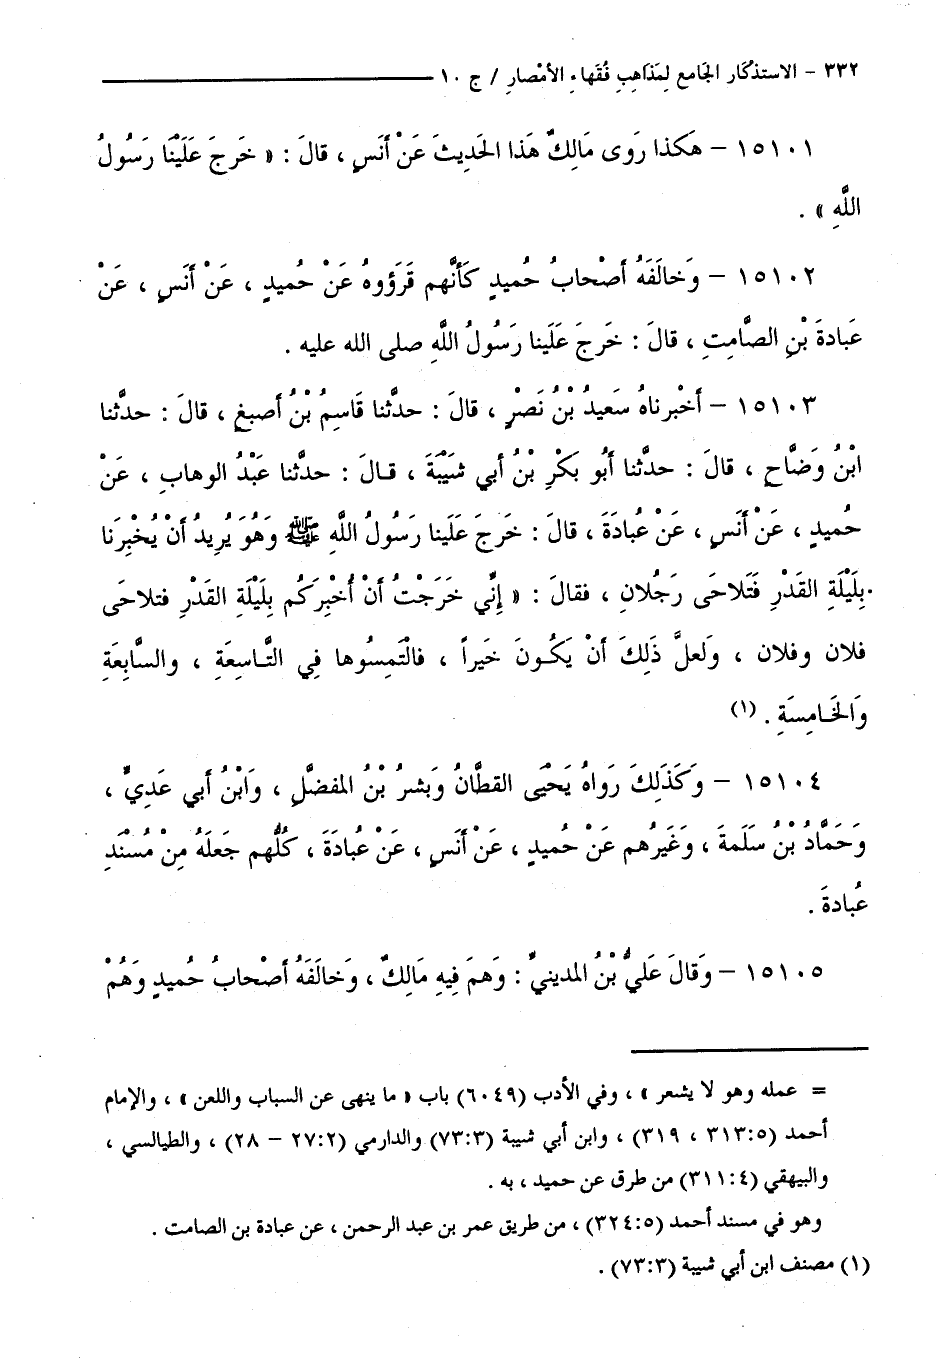 ٣٣٢ - الاستذكار الجامع لِمَذاهِبِ فُقَهاءِ الأمْصارِ / ج ١٠
١٥١٠١ - هَكذا رَوى مَالِكٌ هَذا الحَدِيثَ عَنْ أنَسٍ ، قالَ : « خَرجَ عَلَيْنَا رَسُولُ
اللَّهِ » .
١٥١٠٢ - وَخالَفَهُ أصْحابُ حُميدٍ كَأنَّهم قَرَؤُوهُ عَنْ حُميدٍ ، عَنْ أنَسٍ ، عَنْ
عَبادةَ بْنِ الصَّامِتِ ، قالَ : خَرجَ عَلَينا رَسُولُ اللَّهِ صلى الله عليه .
١٥١٠٣ - أخْبرناهُ سَعِيدُ بْنُ نَصْرٍ ، قالَ : حدَّثنا قَاسِمُ بْنُ أصبغٍ ، قالَ : حدَّثنا
ابْنُ وَضَّاحٍ ، قالَ : حدَّثنا أبُو بَكْرِ بْنُ أبي شَيْبَةَ ، قالَ : حدَّثنا عَبْدُ الوهابِ ، عَنْ
حُميدٍ ، عَنْ أنَسٍ ، عَنْ عُبادَةَ ، قالَ : خَرجَ عَلَينا رَسُولُ اللَّهِ ﷺ وَهُوَ يُرِيدُ أنْ يُخْبِرَنا
بِلَيْلَةِ القَدْرِ فَتَلاحَى رَجُلانِ ، فقالَ : « إنِّي خَرَجْتُ أنْ أُخْبِرَكُم بِلَيْلَةِ القَدْرِ فتلاحَى
فلان وفلان ، وَلعلَّ ذَلِكَ أنْ يَكُونَ خَيراً ، فالْتَمِسُوها فِي التَّاسِعَةِ ، والسَّابِعَةِ
وَالخَامِسَةِ . (١)
١٥١٠٤ - وَكَذَلِكَ رَواهُ يَحْيَى القطَّانُ وَبشرُ بْنُ المفضَّلِ ، وَابْنُ أبي عَدِيٍّ ،
وَحَمَّادُ بْنُ سَلَمةَ ، وَغَيرُهم عَنْ حُميدٍ ، عَنْ أنَسٍ ، عَنْ عُبادَةَ ، كُلُّهم جَعلَهُ مِنْ مُسْنَدِ
عُبادةَ .
١٥١٠٥ - وَقالَ عَلَيُّ بْنُ المدينيِّ : وَهمَ فِيهِ مَالِكٌ ، وَخالَفَهُ أصْحابُ حُميدٍ وَهُمْ
= عمله وهو لا يشعر » ، وفي الأدب (٦٠٤٩) باب « ما ينهى عن السباب واللعن » ، والإمام
أحمد (٣١٣:٥ ، ٣١٩) ، وابن أبي شيبة (٧٣:٣) والدارمي (٢٧:٢ - ٢٨) ، والطيالسي ،
والبيهقي (٣١١:٤) من طرق عن حميد ، به .
وهو في مسند أحمد (٣٢٤:٥) ، من طريق عمر بن عبد الرحمن ، عن عبادة بن الصامت .
(١) مصنف ابن أبي شيبة (٧٣:٣) .